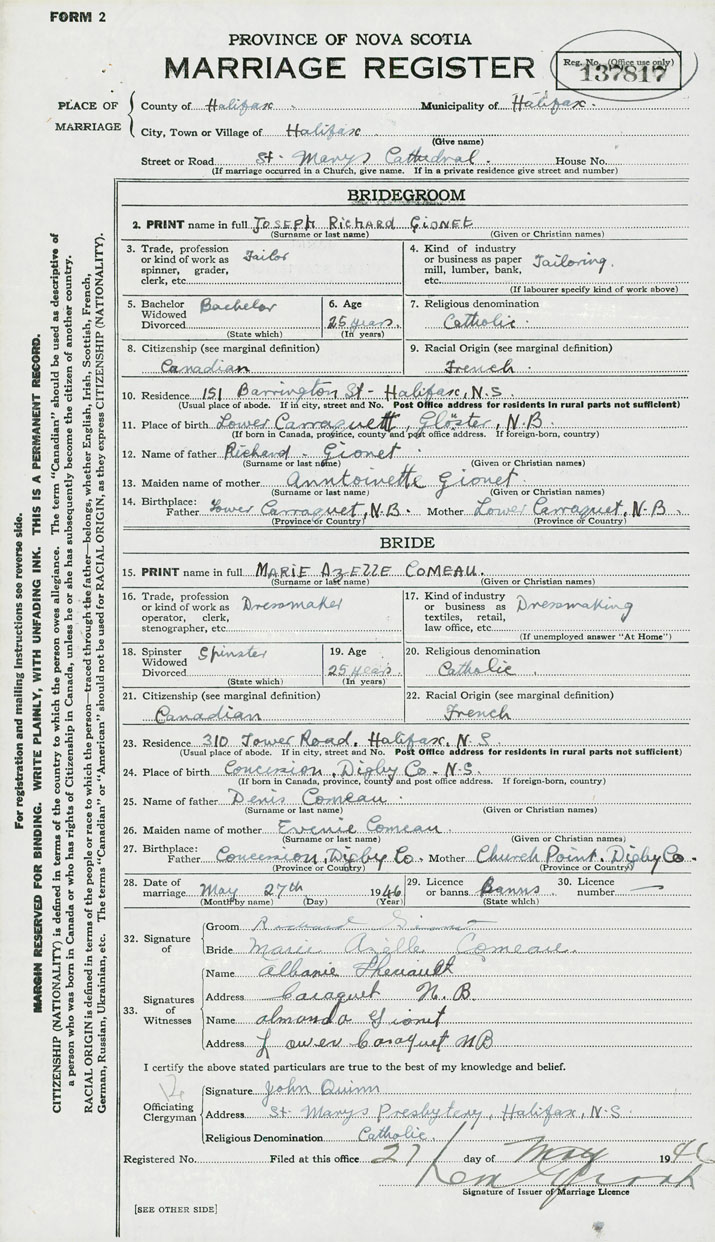 FORM 2
PROVINCE OF NOVA SCOTIA
MARRIAGE REGISTER
Reg. No. (Office use only)
137817
PLACE OF MARRIAGE
County of Halifax. Municipality of Halifax.
City, Town or Village of Halifax
(Give name)
Street or Road St. Marys Cathedral. House No.
(If marriage occurred in a Church, give name. If in a private residence give street and number)
BRIDEGROOM
2. PRINT name in full JOSEPH RICHARD GIONET
(Surname or last name) (Given or Christian names)
3. Trade, profession or kind of work as spinner, grader, clerk, etc. Tailor
4. Kind of industry or business as paper mill, lumber, bank, etc. Tailoring.
(If labourer specify kind of work above)
5. Bachelor Widowed Divorced Bachelor
(State which)
6. Age 25 years.
(In years)
7. Religious denomination
Catholic.
8. Citizenship (see marginal definition)
Canadian
9. Racial Origin (see marginal definition)
French.
10. Residence 151 Barrington St- Halifax, N.S.
(Usual place of abode. If in city, street and No. Post Office address for residents in rural parts not sufficient)
11. Place of birth Lower Carraquett, Glöster, N.B.
(If born in Canada, province, county and post office address. If foreign-born, country)
12. Name of father Richard - Gionet.
(Surname or last name) (Given or Christian names)
13. Maiden name of mother Anntoinette Gionet.
(Surname or last name) (Given or Christian names)
14. Birthplace: Father Lower Carraquet, N.B. Mother Lower Carraquet, N-B
(Province or Country) (Province or Country)
BRIDE
15. PRINT name in full MARIE AZELLE COMEAU.
(Surname or last name) (Given or Christian names)
16. Trade, profession or kind of work as operator, clerk, stenographer, etc. Dressmaker
17. Kind of industry or business as textiles, retail, law office, etc. Dressmaking
(If unemployed answer "At Home")
18. Spinster Widowed Divorced Spinster
(State which)
19. Age 25 years
(In years)
20. Religious denomination
Catholic.
21. Citizenship (see marginal definition)
Canadian
22. Racial Origin (see marginal definition)
French
23. Residence 310 Tower Road, Halifax, N.S.
(Usual place of abode. If in city, street and No. Post Office address for residents in rural parts not sufficient)
24. Place of birth Concession, Digby Co. N.S.
(If born in Canada, province, county and post office address. If foreign-born, country)
25. Name of father Denis Comeau.
(Surname or last name) (Given or Christian names)
26. Maiden name of mother Evenie Comeau
(Surname or last name) (Given or Christian names)
27. Birthplace: Father Concession, Digby Co. Mother Church Point, Digby Co.
(Province or Country) (Province or Country)
28. Date of marriage May 27th 1946
(Month by name) (Day) (Year)
29. Licence or banns Banns
(State which)
30. Licence number —
32. Signature of
Groom Richard Gionet
Bride Marie Azelle Comeau.
33. Signatures of Witnesses
Name Albanie Theriault
Address Caraquet N.B.
Name almanda Gionet
Address Lower Caraquet NB
I certify the above stated particulars are true to the best of my knowledge and belief.
Officiating Clergyman
Signature John Quinn
Address St- Marys Presbytery, Halifax, N-S.
Religious Denomination Catholic.
Registered No. Filed at this office 27 day of May 1946
Signature of Issuer of Marriage Licence
[SEE OTHER SIDE]
For registration and mailing instructions see reverse side.
MARGIN RESERVED FOR BINDING. WRITE PLAINLY, WITH UNFADING INK. THIS IS A PERMANENT RECORD.
CITIZENSHIP (NATIONALITY) is defined in terms of the country to which the person owes allegiance. The term "Canadian" should be used as descriptive of
a person who was born in Canada or who has rights of Citizenship in Canada, unless he or she has subsequently become the citizen of another country.
RACIAL ORIGIN is defined in terms of the people or race to which the person—traced through the father—belongs, whether English, Irish, Scottish, French,
German, Russian, Ukrainian, etc. The terms "Canadian" or "American" should not be used for RACIAL ORIGIN, as they express CITIZENSHIP (NATIONALITY).